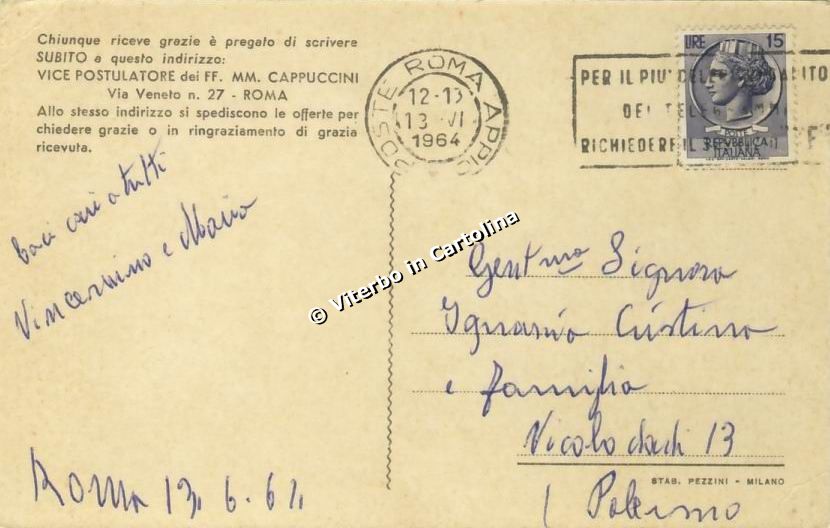 Chiunque riceve grazie è pregato di scrivere
SUBITO a questo indirizzo:
VICE POSTULATORE dei FF. MM. CAPPUCCINI
Via Veneto n. 27 - ROMA
Allo stesso indirizzo si spediscono le offerte per
chiedere grazie o in ringraziamento di grazia
ricevuta.
POSTE ROMA APPIO
12-13
13 VI
1964
LIRE 15
POSTE
REPVBBLICA
ITALIANA
PER IL PIU'
DEI
RICHIEDERE IL
Baci cari a tutti
Vincenzino e Maria
Roma 13. 6. 64
© Viterbo in Cartolina
Gent.ma Signora
Ignazio Cristina
e famiglia
Vicolo dadi 13
STAB. PEZZINI - MILANO
( Palermo